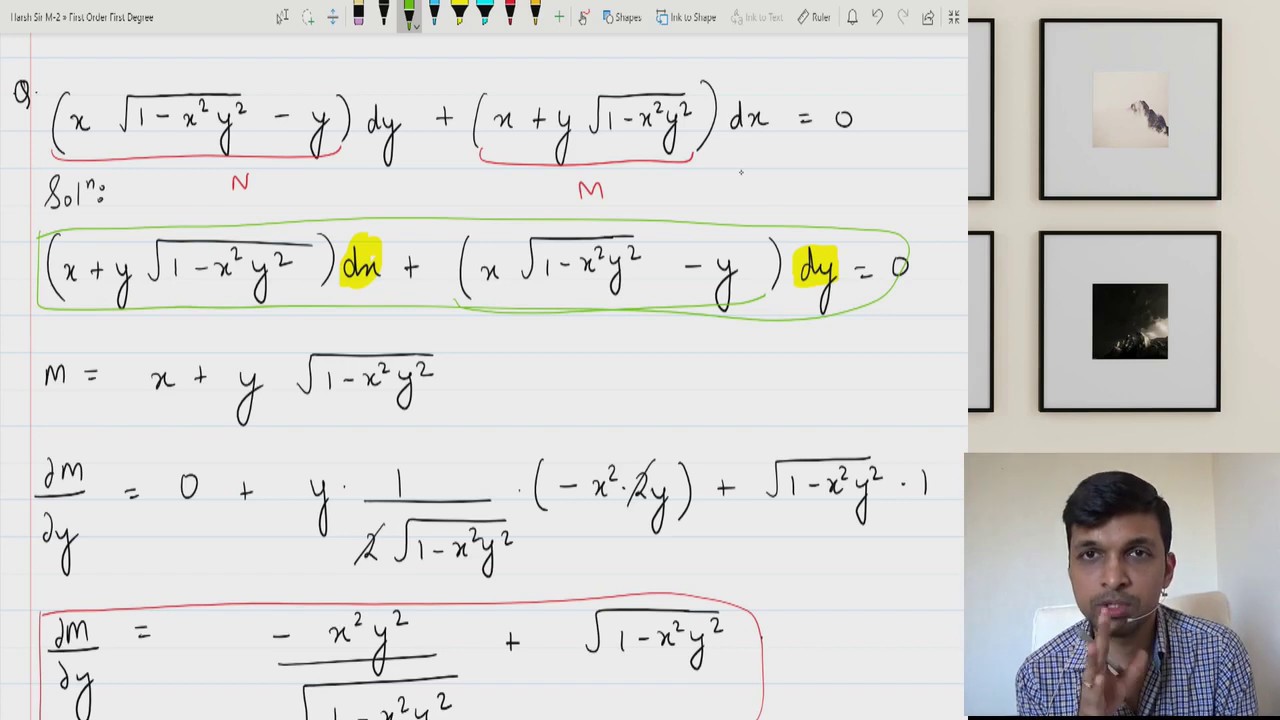 Harsh Sir M-2 » First Order First Degree
Shapes Ink to Shape Ink to Text Ruler
Q. (x √(1 - x² y²) - y) dy + (x + y √(1 - x² y²)) dx = 0
N M
Solⁿ:
(x + y √(1 - x² y²)) dx + (x √(1 - x² y²) - y) dy = 0
M = x + y √(1 - x² y²)
∂M/∂y = 0 + y · 1/(2 √(1 - x² y²)) · (- x² · 2y) + √(1 - x² y²) · 1
∂M/∂y = - x² y²/√(1 - x² y²) + √(1 - x² y²)